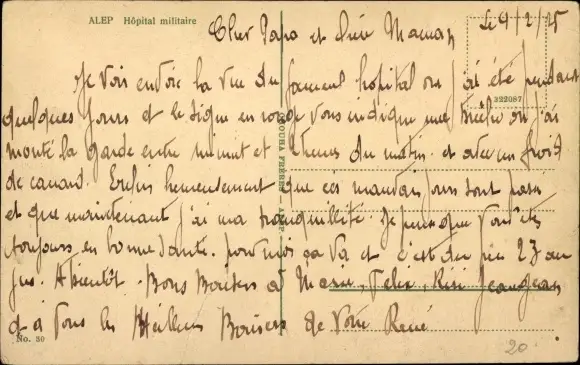 ALEP Hôpital militaire
Le 9/2/25
Cher Papa et chère Maman
222087
Je vois envoie la vue du fameux hopital ou j'ai été pendant
quelques jours et le signe en rouge vous indique une briche ou j'ai
monté la garde entre minuit et heures du matin et avec un froid
de canard. Enfin heureusement que ces mauvais jours sont passés
et que maintenant j'ai ma tranquillité. Je pense que vous êtes
toujours en bonne santé. pour moi ça va et c'est du 23 au
jus. A bientôt. Bons Baisers à Marie, Felix, Riri Jeangean
et à vous les Meilleurs Baisers de votre René
No. 30
20